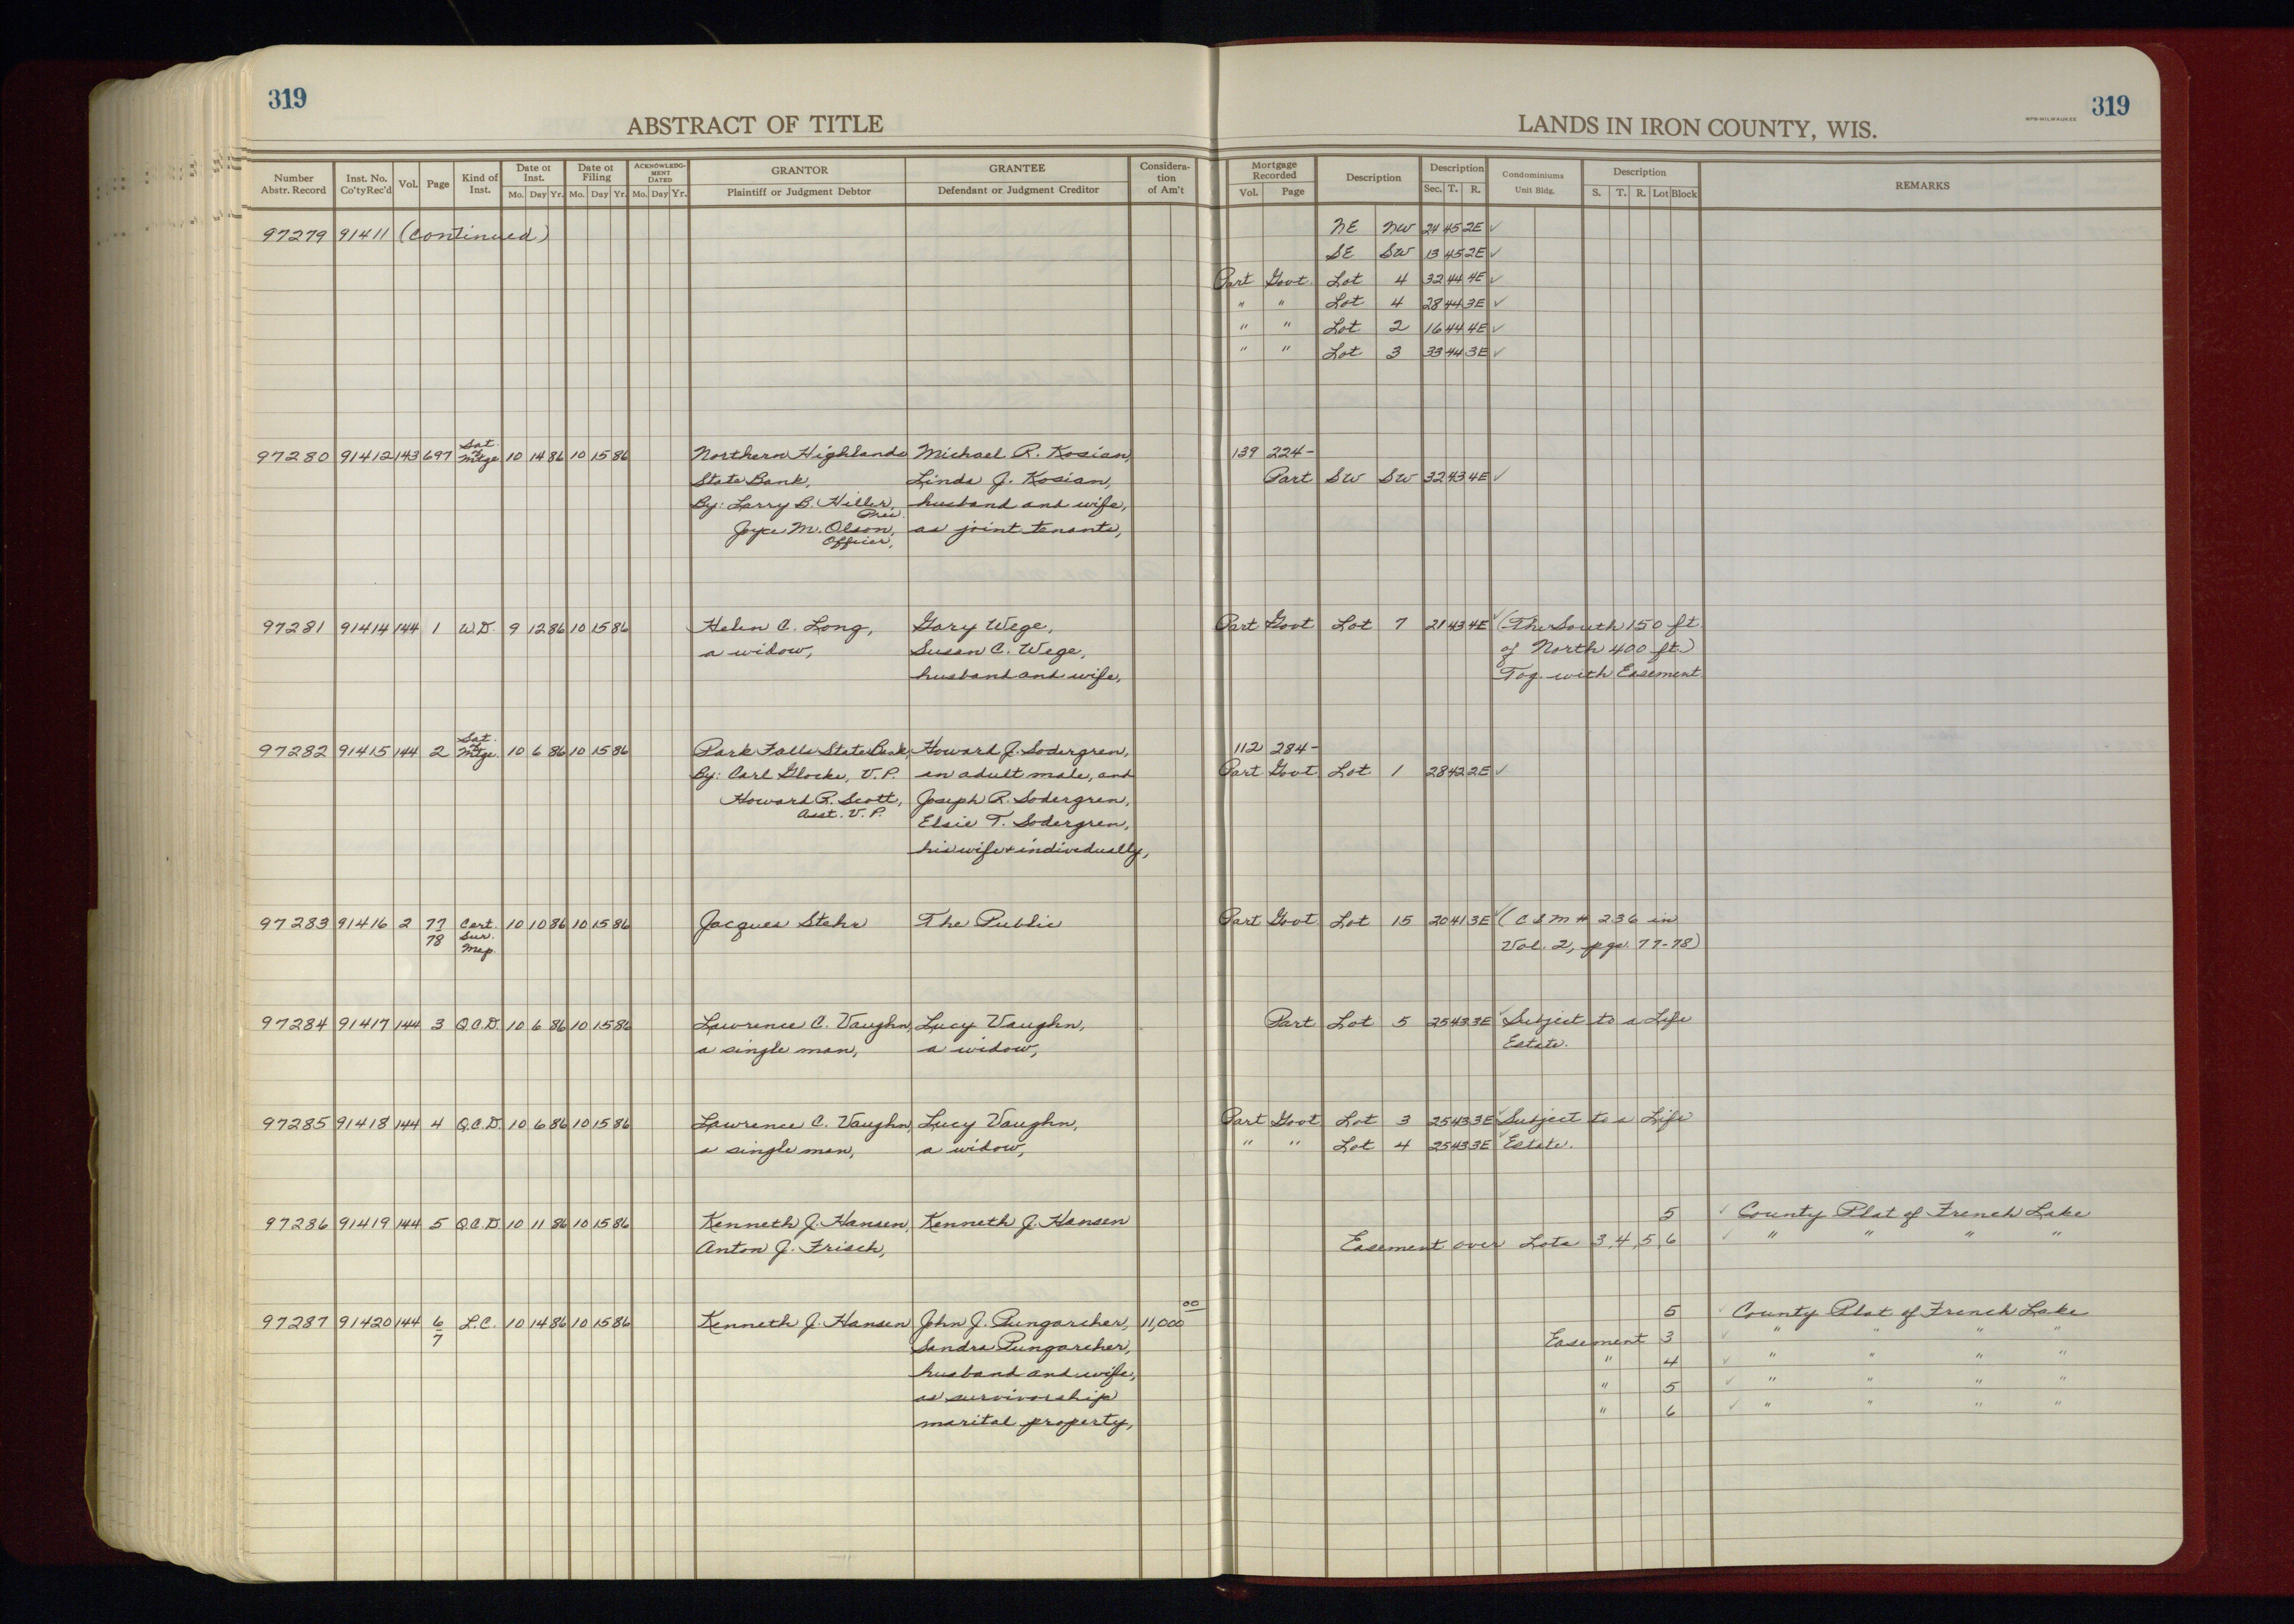 319
ABSTRACT OF TITLE
LANDS IN IRON COUNTY, WIS.
MPB-MILWAUKEE
319
Number Abstr. Record | Inst. No. Co'ty Rec'd | Vol. | Page | Kind of Inst. | Date of Inst. Mo. Day Yr. | Date of Filing Mo. Day Yr. | ACKNOWLEDGMENT DATED Mo. Day Yr. | GRANTOR Plaintiff or Judgment Debtor | GRANTEE Defendant or Judgment Creditor | Consideration of Am't | Mortgage Recorded Vol. Page | Description | Description Sec. T. R. | Condominiums Unit Bldg. | Description S. T. R. Lot Block | REMARKS
97279 91411 (continued) NE NW 24 45 2E ✓
SE SW 13 45 2E ✓
Part Govt. Lot 4 32 44 4E ✓
" " Lot 4 28 44 3E ✓
" " Lot 2 16 44 4E ✓
" " Lot 3 33 44 3E ✓
97280 91412 143 697 Sat. of Mtge. 10 14 86 10 15 86 Northern Highlands Michael R. Kosian, 139 224-
State Bank, Linda J. Kosian, Part SW SW 32 43 4E ✓
By: Larry B. Hiller, Pres. husband and wife,
Joyce M. Olson, Officer, as joint tenants,
97281 91414 144 1 W.D. 9 12 86 10 15 86 Helen C. Long, Gary Wege, Part Govt Lot 7 21 43 4E ✓ (The South 150 ft.
a widow, Susan C. Wege, of North 400 ft.)
husband and wife, Tog. with Easement.
97282 91415 144 2 Sat. of Mtge. 10 6 86 10 15 86 Park Falls State Bank, Howard J. Sodergren, 112 284-
By: Carl Glocke, V.P. an adult male, and Part Govt Lot 1 28 42 2E ✓
Howard R. Scott, Asst. V.P. Joseph R. Sodergren,
Elsie T. Sodergren,
his wife + individually,
97283 91416 2 77 78 Cert. Sur. Map. 10 10 86 10 15 86 Jacques Stehr The Public Part Govt. Lot 15 20 41 3E ✓ (CSM # 236 in
Vol. 2, pgs. 77-78)
97284 91417 144 3 Q.C.D. 10 6 86 10 15 86 Lawrence C. Vaughn, Lucy Vaughn, Part Lot 5 25 43 3E ✓ Subject to a Life
a single man, a widow, Estate.
97285 91418 144 4 Q.C.D. 10 6 86 10 15 86 Lawrence C. Vaughn, Lucy Vaughn, Part Govt Lot 3 25 43 3E ✓ Subject to a Life
a single man, a widow, " " Lot 4 25 43 3E ✓ Estate.
97286 91419 144 5 Q.C.D. 10 11 86 10 15 86 Kenneth J. Hansen, Kenneth J. Hansen 5 ✓ County Plat of French Lake
Anton J. Frisch, Easement over Lots 3, 4, 5, 6 ✓ " " " "
97287 91420 144 6/7 L.C. 10 14 86 10 15 86 Kenneth J. Hansen John J. Pungarcher, 11,000 00 5 ✓ County Plat of French Lake
Sandra Pungarcher, Easement 3 ✓ " " " "
husband and wife, " 4 ✓ " " " "
as survivorship " 5 ✓ " " " "
marital property, " 6 ✓ " " " "